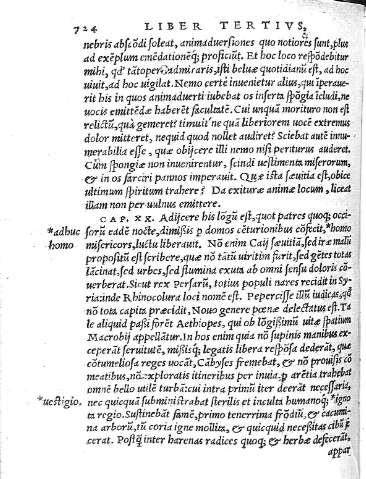 724 LIBER TERTIVS,
nebris abscōdi soleat, animaduersiones quo notiores sunt, plus
ad exēplum emēdationēq; proficiūt. Et hoc loco respōdebitur
mihi, qd' tātoperè admiraris, isti beluæ quotidianū est, ad hoc
uiuit, ad hoc uigilat. Nemo certè inuenietur alius, qui īperaue-
rit his in quos animaduerti iubebat os inserta spōgia īcludi, ne
uocis emittēdæ haberēt facultatē. Cui unquā morituro non est
relictū, quà gemeret? timuit ne quā liberiorem uocē extremus
dolor mitteret, nequid quod nollet audiret? Sciebat autē innu-
merabilia esse, quæ obijcere illi nemo nisi periturus auderet.
Cùm spongiæ non inuenirentur, scindi uestimenta miserorum,
& in os farciri pannos imperauit. Quæ ista sæuitia est, obice
ultimum spiritum trahere? Da exituræ animæ locum, liceat
illam non per uulnus emittere.
CAP. XX. Adijcere his lōgū est, quot patres quoq; occi-
*adhuc sorū eadē nocte, dimissis p domos cēturionibus cōfecit, *homo
homo misericors, luctu liberauit. Nō enim Caij sæuitiā, sed iræ malū
propositū est scribere, quæ nō tātū uiritim furit, sed gētes totas
lācinat, sed urbes, sed flumina exuta ab omni sensu doloris cō-
uerberat. Sicut rex Persarū, totius populi nares recidit in Sy-
ria, inde Rhinocolura loci nomē est. Pepercisse illū iudicas, qd'
nō tota capita præcidit, Nouo genere pœnæ delectatus est. Ta
le aliquid passi forēt Aethiopes, qui ob lōgissimū uitæ spatium
Macrobij appellātur. In hos enim quia nō supinis manibus ex-
ceperāt seruitutē, missisq; legatis libera respōsa dederāt, quæ
cōtumeliosa reges uocāt, Cābyses fremebat, & nō prouisis co
meatibus, nō exploratis itineribus per inuia, p arētia trahebat
omnē bello utilē turbā: cui intra primū iter deerāt necessaria,
*uestigio. nec quicquā subministrabat sterilis et inculta humanoq; *igno
ta regio. Sustinebāt famē, primo tenerrima frōdiū, & cacumi-
na arborū, tū coria igne mollita, & quicquid necessitas cibū fe
cerat. Postq̄ inter harenas radices quoq; & herbæ defecerāt,
appar